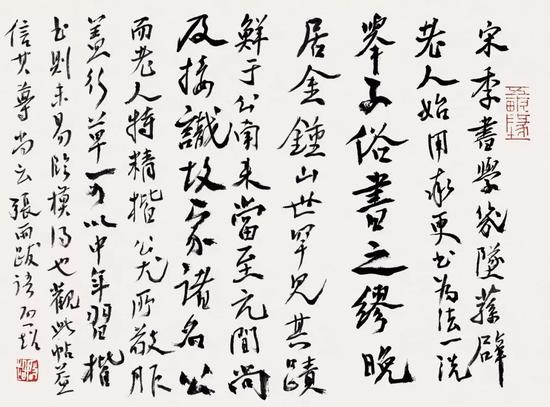 宋季書學衰墜蓀辟
老人始用率更書為法一洗
舉子俗書之繆晚
居金鍾山世罕見其蹟
鮮于公南來當至元間尚
及接識故家諸名公
而老人特精楷公尤所敬服
蓋行草可以中年習楷
書則未易臨模得也觀此帖益
信其尊尚云張雨跋語